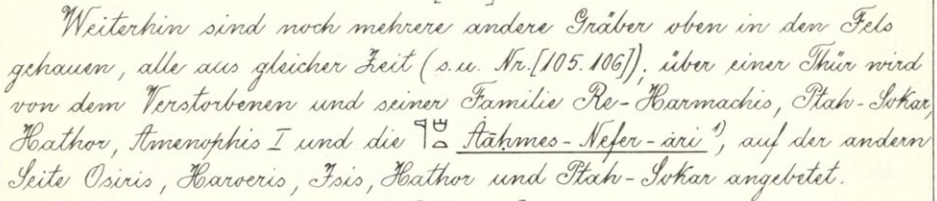 Weiterhin sind noch mehrere andere Gräber oben in den Fels
gehauen, alle aus gleicher Zeit (s.u. Nr.[105.106]); über einer Thür wird
von dem Verstorbenen und seiner Familie Re-Harmachis, Ptah-Sokar,
Hathor, Amenophis I und die 𓊹𓎟𓏏 Āāhmes-Nefer-āri¹), auf der andern
Seite Osiris, Haroeris, Isis, Hathor und Ptah-Sokar angebetet.